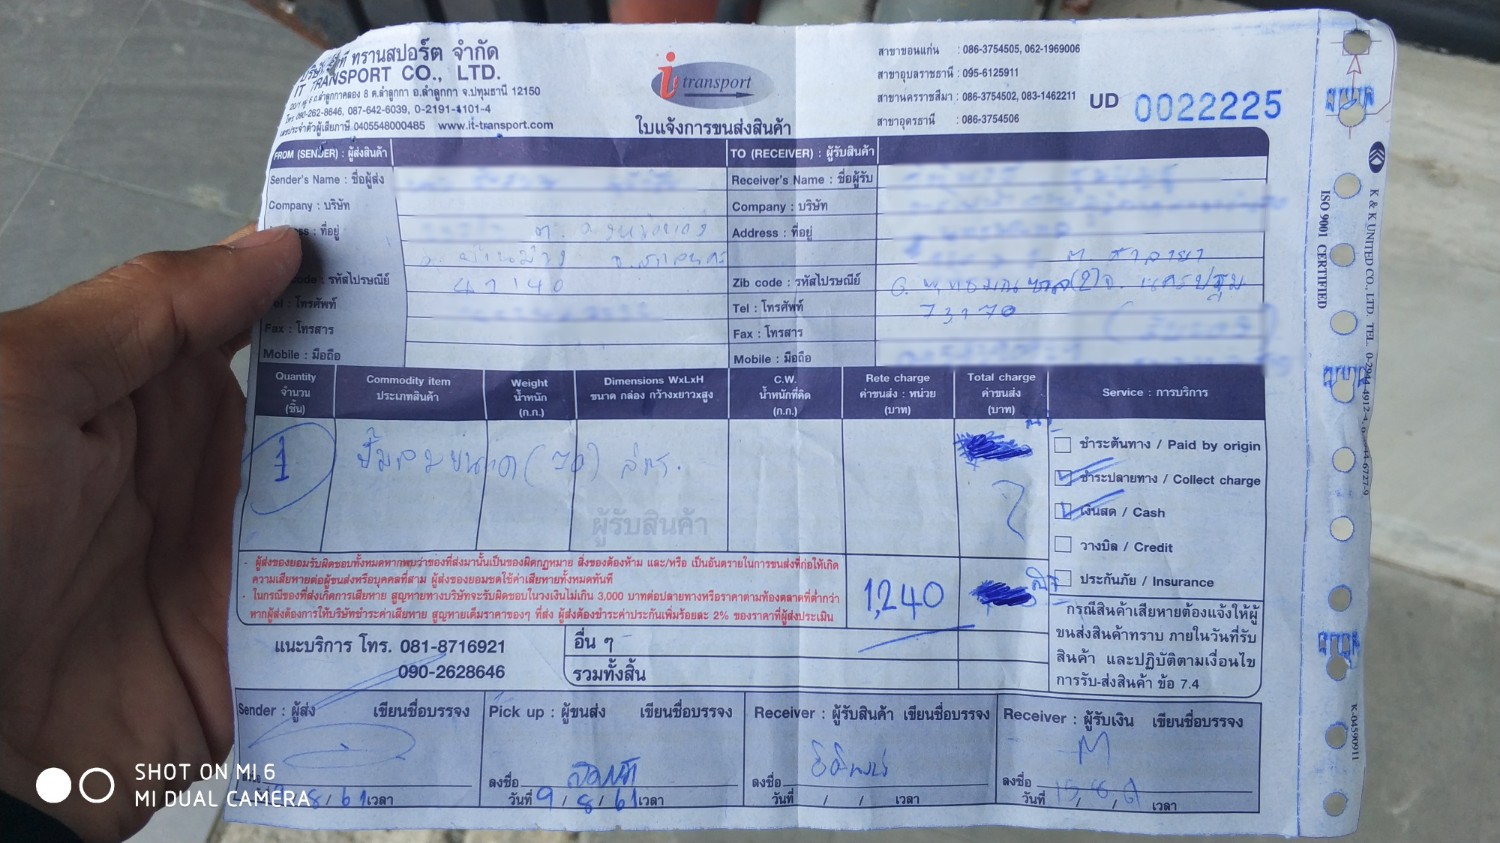 ที ทรานสปอร์ต จำกัด
IT TRANSPORT CO., LTD.
ถ.ลำลูกกาคลอง 8 ต.ลำลูกกา อ.ลำลูกกา จ.ปทุมธานี 12150
โทร. 090-262-8646, 087-642-6039, 0-2191-4101-4
เลขประจำตัวผู้เสียภาษี 0405548000485 www.it-transport.com
it transport
ใบแจ้งการขนส่งสินค้า
สาขาขอนแก่น : 086-3754505, 062-1969006
สาขาอุบลราชธานี : 095-6125911
สาขานครราชสีมา : 086-3754502, 083-1462211
สาขาอุดรธานี : 086-3754506
UD 0022225
FROM (SENDER) : ผู้ส่งสินค้า
TO (RECEIVER) : ผู้รับสินค้า
Sender's Name : ชื่อผู้ส่ง
Receiver's Name : ชื่อผู้รับ
Company : บริษัท
Company : บริษัท
: ที่อยู่
Address : ที่อยู่
ต. ศาลายา
code : รหัสไปรษณีย์
47140
Zib code : รหัสไปรษณีย์
อ. พุทธมณฑล (2) จ. นครปฐม
Tel : โทรศัพท์
Tel : โทรศัพท์
73170
Fax : โทรสาร
Fax : โทรสาร
Mobile : มือถือ
Mobile : มือถือ
Quantity จำนวน (ชิ้น)
Commodity item ประเภทสินค้า
Weight น้ำหนัก (ก.ก.)
Dimensions WxLxH ขนาด กล่อง กว้างxยาวxสูง
C.W. น้ำหนักที่คิด (ก.ก.)
Rete charge ค่าขนส่ง : หน่วย (บาท)
Total charge ค่าขนส่ง (บาท)
Service : การบริการ
1
ปั๊มลมขนาด (70) ลิตร.
ผู้รับสินค้า
ชำระต้นทาง / Paid by origin
ชำระปลายทาง / Collect charge
เงินสด / Cash
วางบิล / Credit
ประกันภัย / Insurance
- ผู้ส่งของยอมรับผิดชอบทั้งหมดหากพบว่าของที่ส่งมานั้นเป็นของผิดกฎหมาย สิ่งของต้องห้าม และ/หรือ เป็นอันตรายในการขนส่งที่ก่อให้เกิด
ความเสียหายต่อผู้ขนส่งหรือบุคคลที่สาม ผู้ส่งของยอมชดใช้ค่าเสียหายทั้งหมดทันที
- ในกรณีของที่ส่งเกิดการเสียหาย สูญหายทางบริษัทจะรับผิดชอบในวงเงินไม่เกิน 3,000 บาทต่อปลายทางหรือราคาตามท้องตลาดที่ต่ำกว่า
หากผู้ส่งต้องการให้บริษัทชำระค่าเสียหาย สูญหายเต็มราคาของๆ ที่ส่ง ผู้ส่งต้องชำระค่าประกันเพิ่มร้อยละ 2% ของราคาที่ผู้ส่งประเมิน
1,240
กรณีสินค้าเสียหายต้องแจ้งให้ผู้
ขนส่งสินค้าทราบ ภายในวันที่รับ
สินค้า และปฏิบัติตามเงื่อนไข
การรับ-ส่งสินค้า ข้อ 7.4
แนะบริการ โทร. 081-8716921
090-2628646
อื่น ๆ
รวมทั้งสิ้น
Sender : ผู้ส่ง เขียนชื่อบรรจง
Pick up : ผู้ขนส่ง เขียนชื่อบรรจง
Receiver : ผู้รับสินค้า เขียนชื่อบรรจง
Receiver : ผู้รับเงิน เขียนชื่อบรรจง
ลงชื่อ
ลงชื่อ
ลงชื่อ
/ 8 / 61 เวลา
วันที่ 9 / 8 / 61 เวลา
วันที่ / / เวลา
วันที่ 15 / 8 / 61 เวลา
ISO 9001 CERTIFIED
K & K UNITED CO., LTD.
K-04590911
SHOT ON MI 6
MI DUAL CAMERA